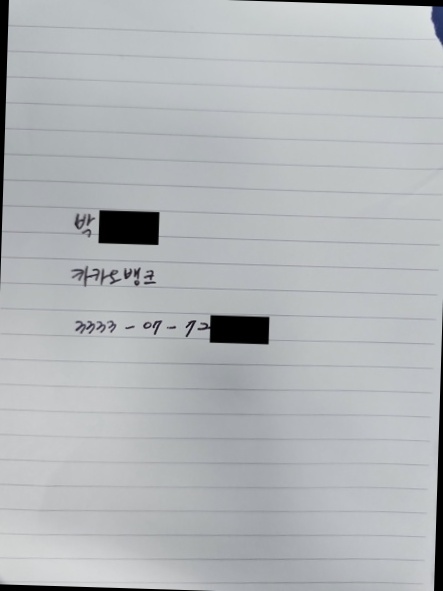 박
카카오뱅크
3333-07-72